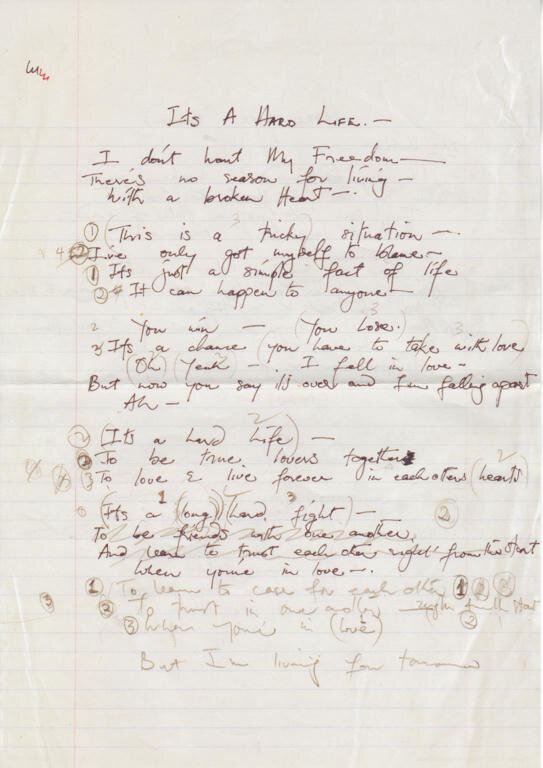 It's A Hard Life. —
I don't want My Freedom —
There's no season for living —
With a broken Heart —.
① (This is a tricky) situation —.
3
4 ② I've only got myself to blame —
1 Its just a simple fact of life
② 4 It can happen to anyone —
2 You win — (You Lose.)
3
3 It's a chance (you have to take with love
3
(Oh) (Yeah — . I fell in love —
But now you say it's over and I'm falling apart
Ah —
② (It's a hard life) —
2
① To be true lovers together
③ 3 To love & live forever in each others (hearts)
2
(Its a (long) (hard fight) —
1 3
②
To be friends with one another,
And learn to trust each other right from the start
When you're in love —.
① (To learn to care for each other ① ② ③
③ ② To trust in one another right from the start
③ When you're in (love) ②
But I'm living for tomorrow